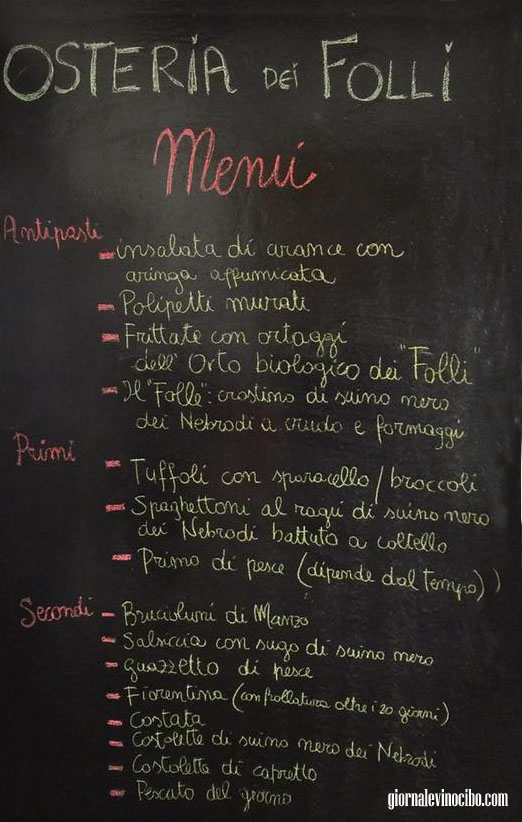 OSTERIA DEI FOLLI
Menú
Antipasti
- insalata di arance con
aringa affumicata
- Polipetti murati
- Frittate con ortaggi
dell' Orto biologico dei "Folli"
- Il "Folle": crostino di suino nero
dei Nebrodi a crudo e formaggi
Primi
- Tuffoli con sparacello/broccoli
- Spaghettoni al ragù di suino nero
dei Nebrodi battuto a coltello
- Primo di pesce (dipende dal tempo))
Secondi - Bruciuluni di Manzo
- Salsiccia con sugo di suino nero
- guazzetto di pesce
- Fiorentina (con frollatura oltre i 20 giorni)
- Costata
- Costolette di suino nero dei Nebrodi
- Costolette di capretto
- Pescato del giorno
giornalevinocibo.com